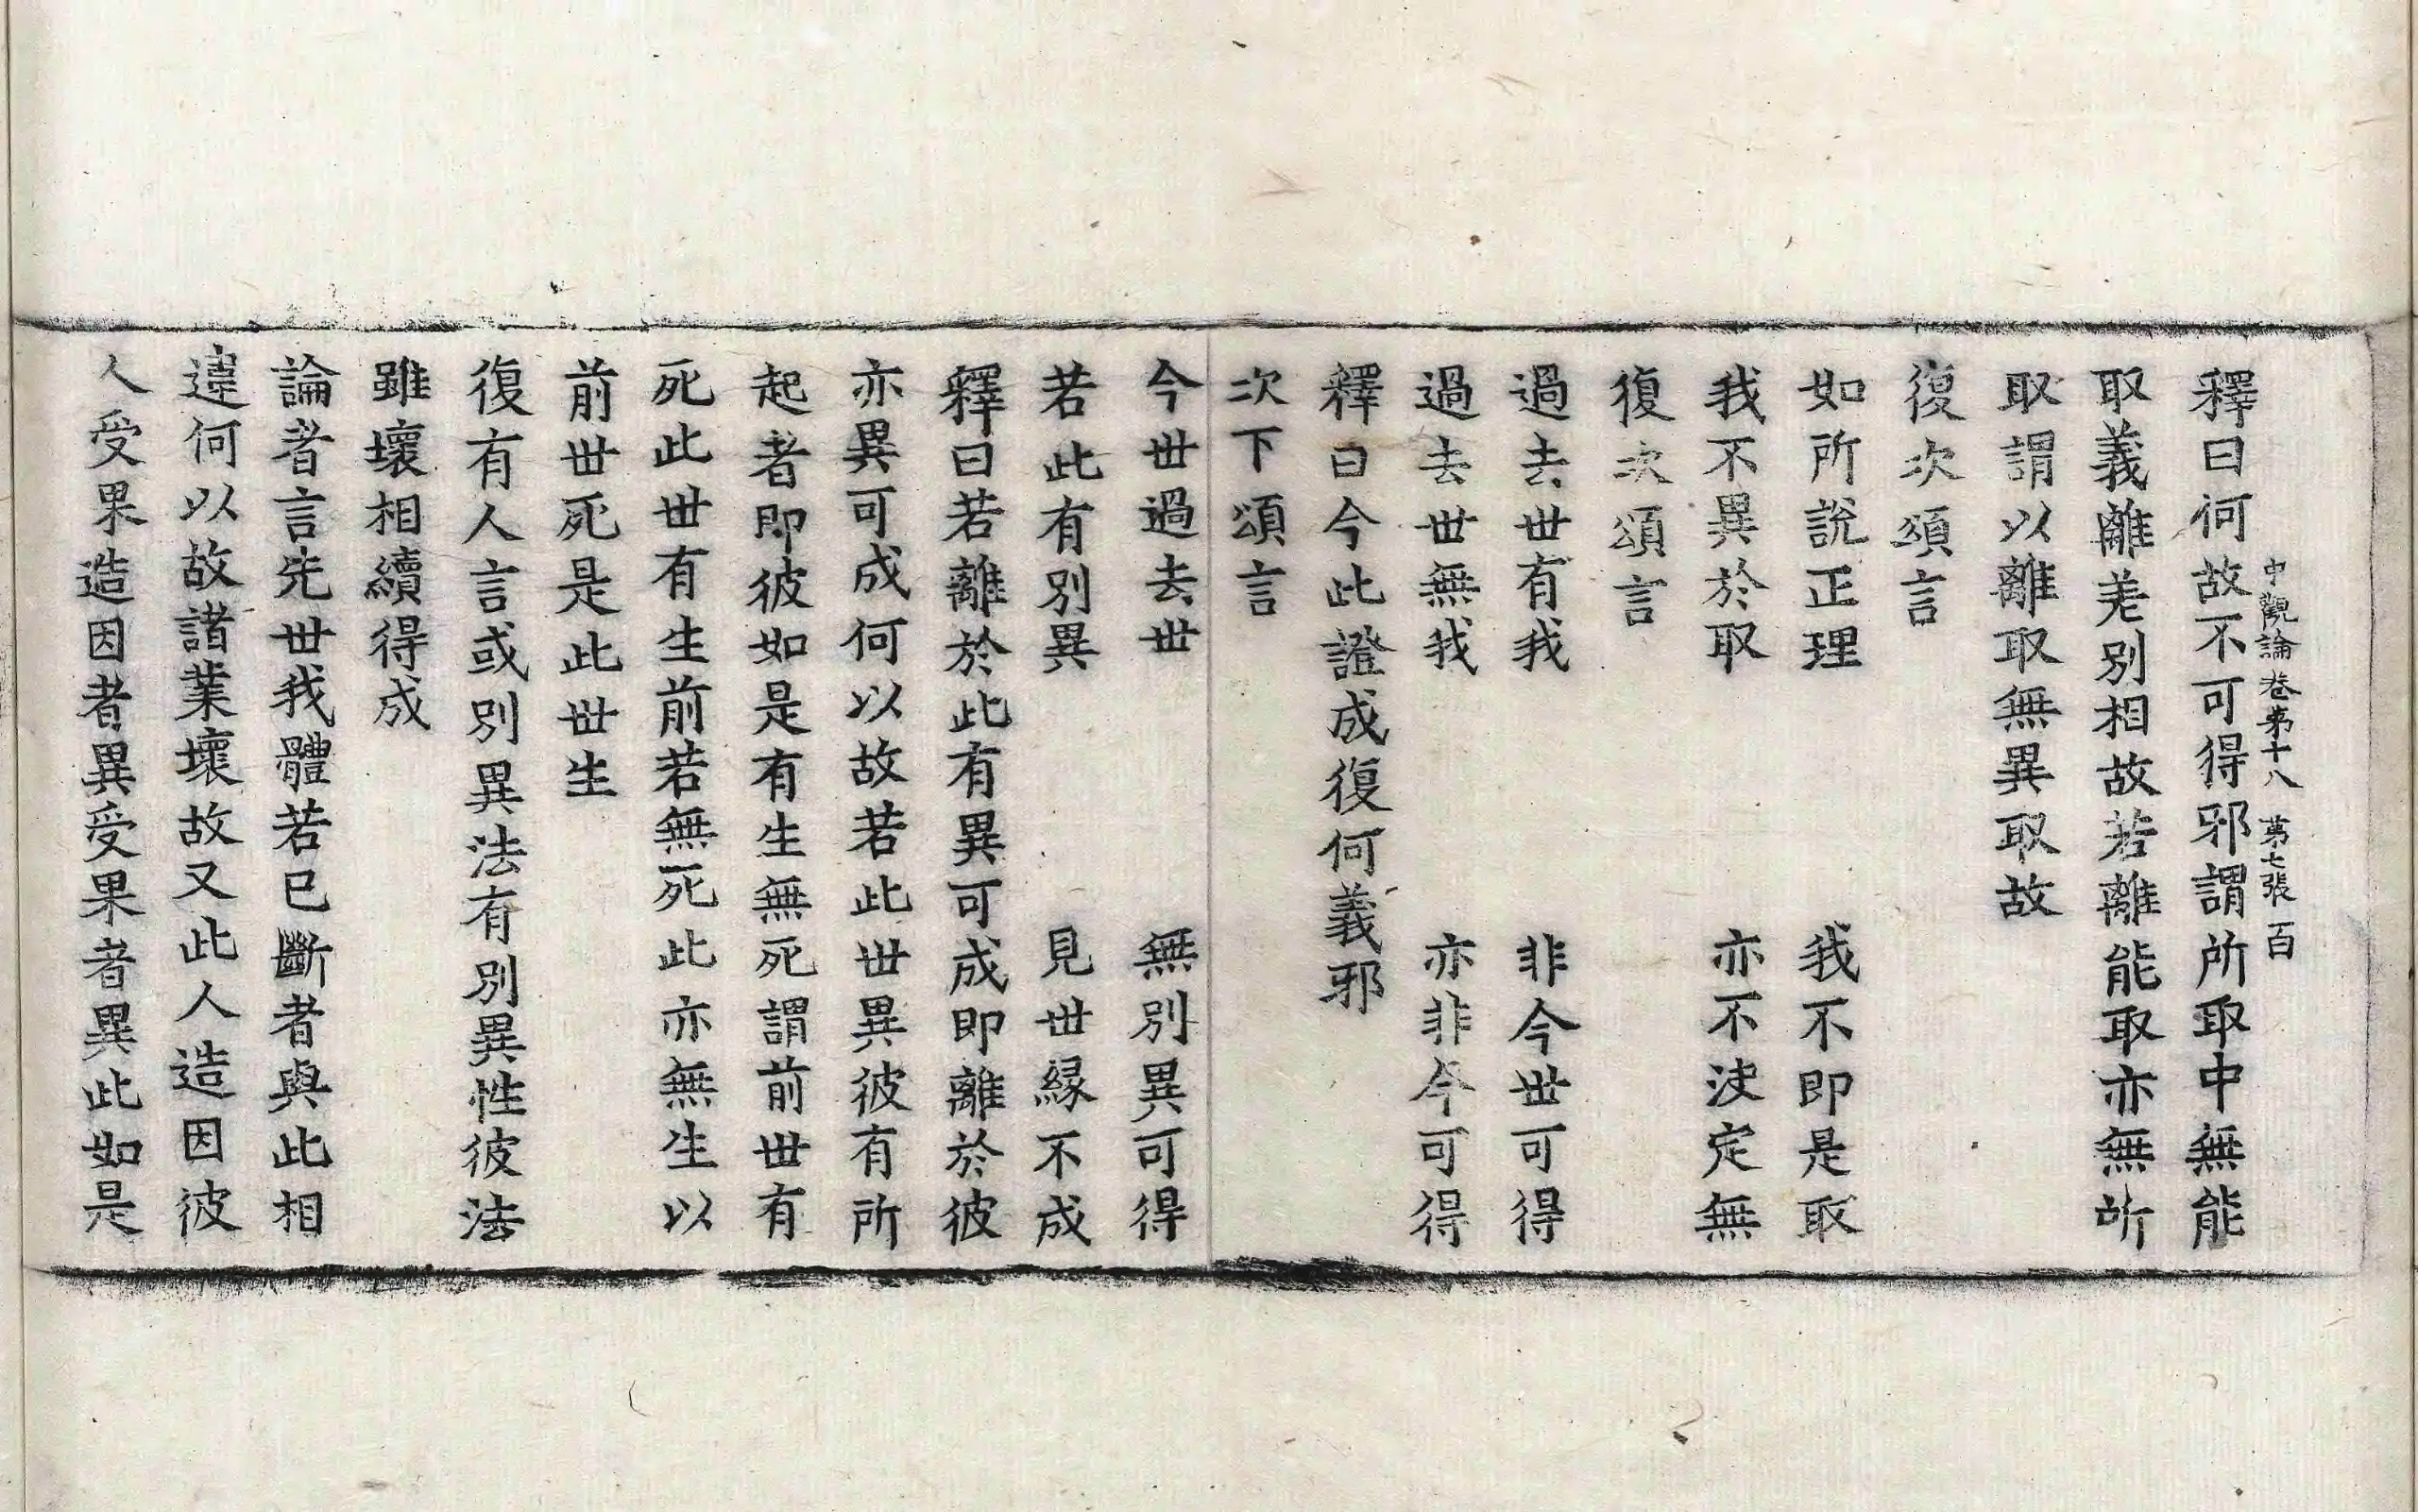 中觀論卷第十八　第七張　百
釋曰何故不可得邪謂所取中無能
取義離差別相故若離能取亦無所
取謂以離取無異取故
復次頌言
如所說正理　我不即是取
我不異於取　亦不決定無
復次頌言
過去世有我　非今世可得
過去世無我　亦非今可得
釋曰今此證成復何義邪
次下頌言
今世過去世　無別異可得
若此有別異　見世緣不成
釋曰若離於此有異可成即離於彼
亦異可成何以故若此世異彼有所
起者即彼如是有生無死謂前世有
死此世有生前若無死此亦無生以
前世死是此世生
復有人言或別異法有別異性彼法
雖壞相續得成
論者言先世我體若已斷者與此相
違何以故諸業壞故又此人造因彼
人受果造因者異受果者異此如是